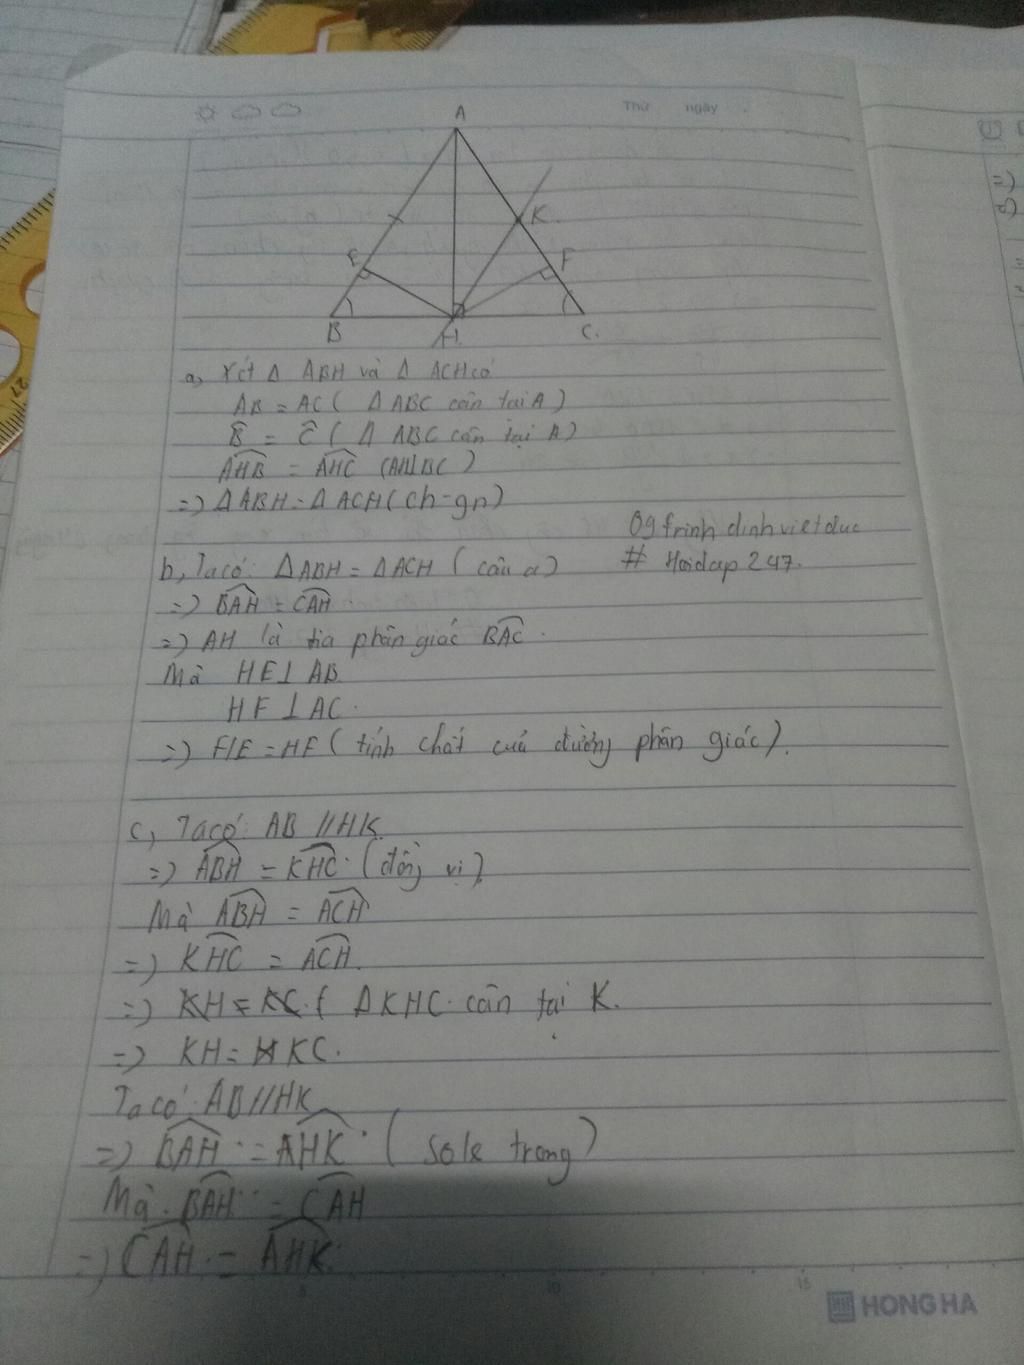 Thứ ngày
A
K.
E
F
B
H.
C.
27
=)
a, Xét Δ ABH và Δ ACH có
AB = AC ( Δ ABC cân tại A )
B̂ = Ĉ ( Δ ABC cân tại A )
AHB = AHC (AH⊥BC )
=) Δ ABH = Δ ACH ( ch-gn )
09 trinh dinh viet duc
b, Ta có: ΔABH = ΔACH ( câu a )
# Hoidap 247.
=) BAH = CAH
=) AH là tia phân giác BAC.
Mà HE⊥AB
HF⊥AC.
=) HE = HF ( tính chất của đường phân giác ).
c, Ta có: AB // HK
=) ABH = KHC. ( đồng vị )
Mà ABH = ACH
=) KHC = ACH.
=) KH = KC. ( ΔKHC. cân tại K.
=) KH = KC.
Ta có: AB // HK
=) BAH = AHK. ( sole trong )
Mà. BAH = CAH
=) CAH = AHK.
5 10 15
HONG HA